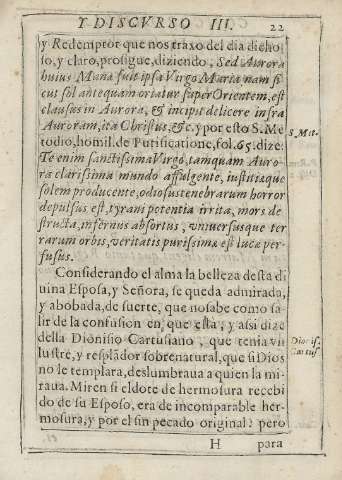 Y DISCVRSO III. 22
y Redemptor que nos traxo del dia dicho-
so, y claro, prosigue, diziendo, Sed Aurora
huius Mana fuit ipsa Virgo Maria nam si
cut sol antequam oriatur super Orientem, est
clausus in Aurora, & incipit delicere infra
Auroram, ita Christus, &c. y por esto S. Me
todio, homil. de Purificatione, fol. 65. dize:
Te enim sanctissima Virgo, tamquam Auro-
ra clarissima mundo affulgente, iustitiæque
solem producente, odiosus tenebrarum horror
depulsus est, tyrani potentia irrita, mors de-
structa, infernus absortus, vniversusque ter
rarum orbis, veritatis purissima est luce per-
fusus.
Considerando el alma la belleza desta di
uina Esposa, y Señora, se queda admirada,
y abobada, de suerte, que no sabe como sa-
lir de la confusion en que està, y assi dize
della Dionisio Cartusiano, que tenia vn
ilustre, y resplãdor sobrenatural, que si Dios
no le templara, deslumbraua a quien la mi-
raua. Miren si el dote de hermosura recebi
do de su Esposo, era de incomparable her-
mosura, y por el sin pecado original: pero
H para
S. Me.
Dionis.
Cartus.